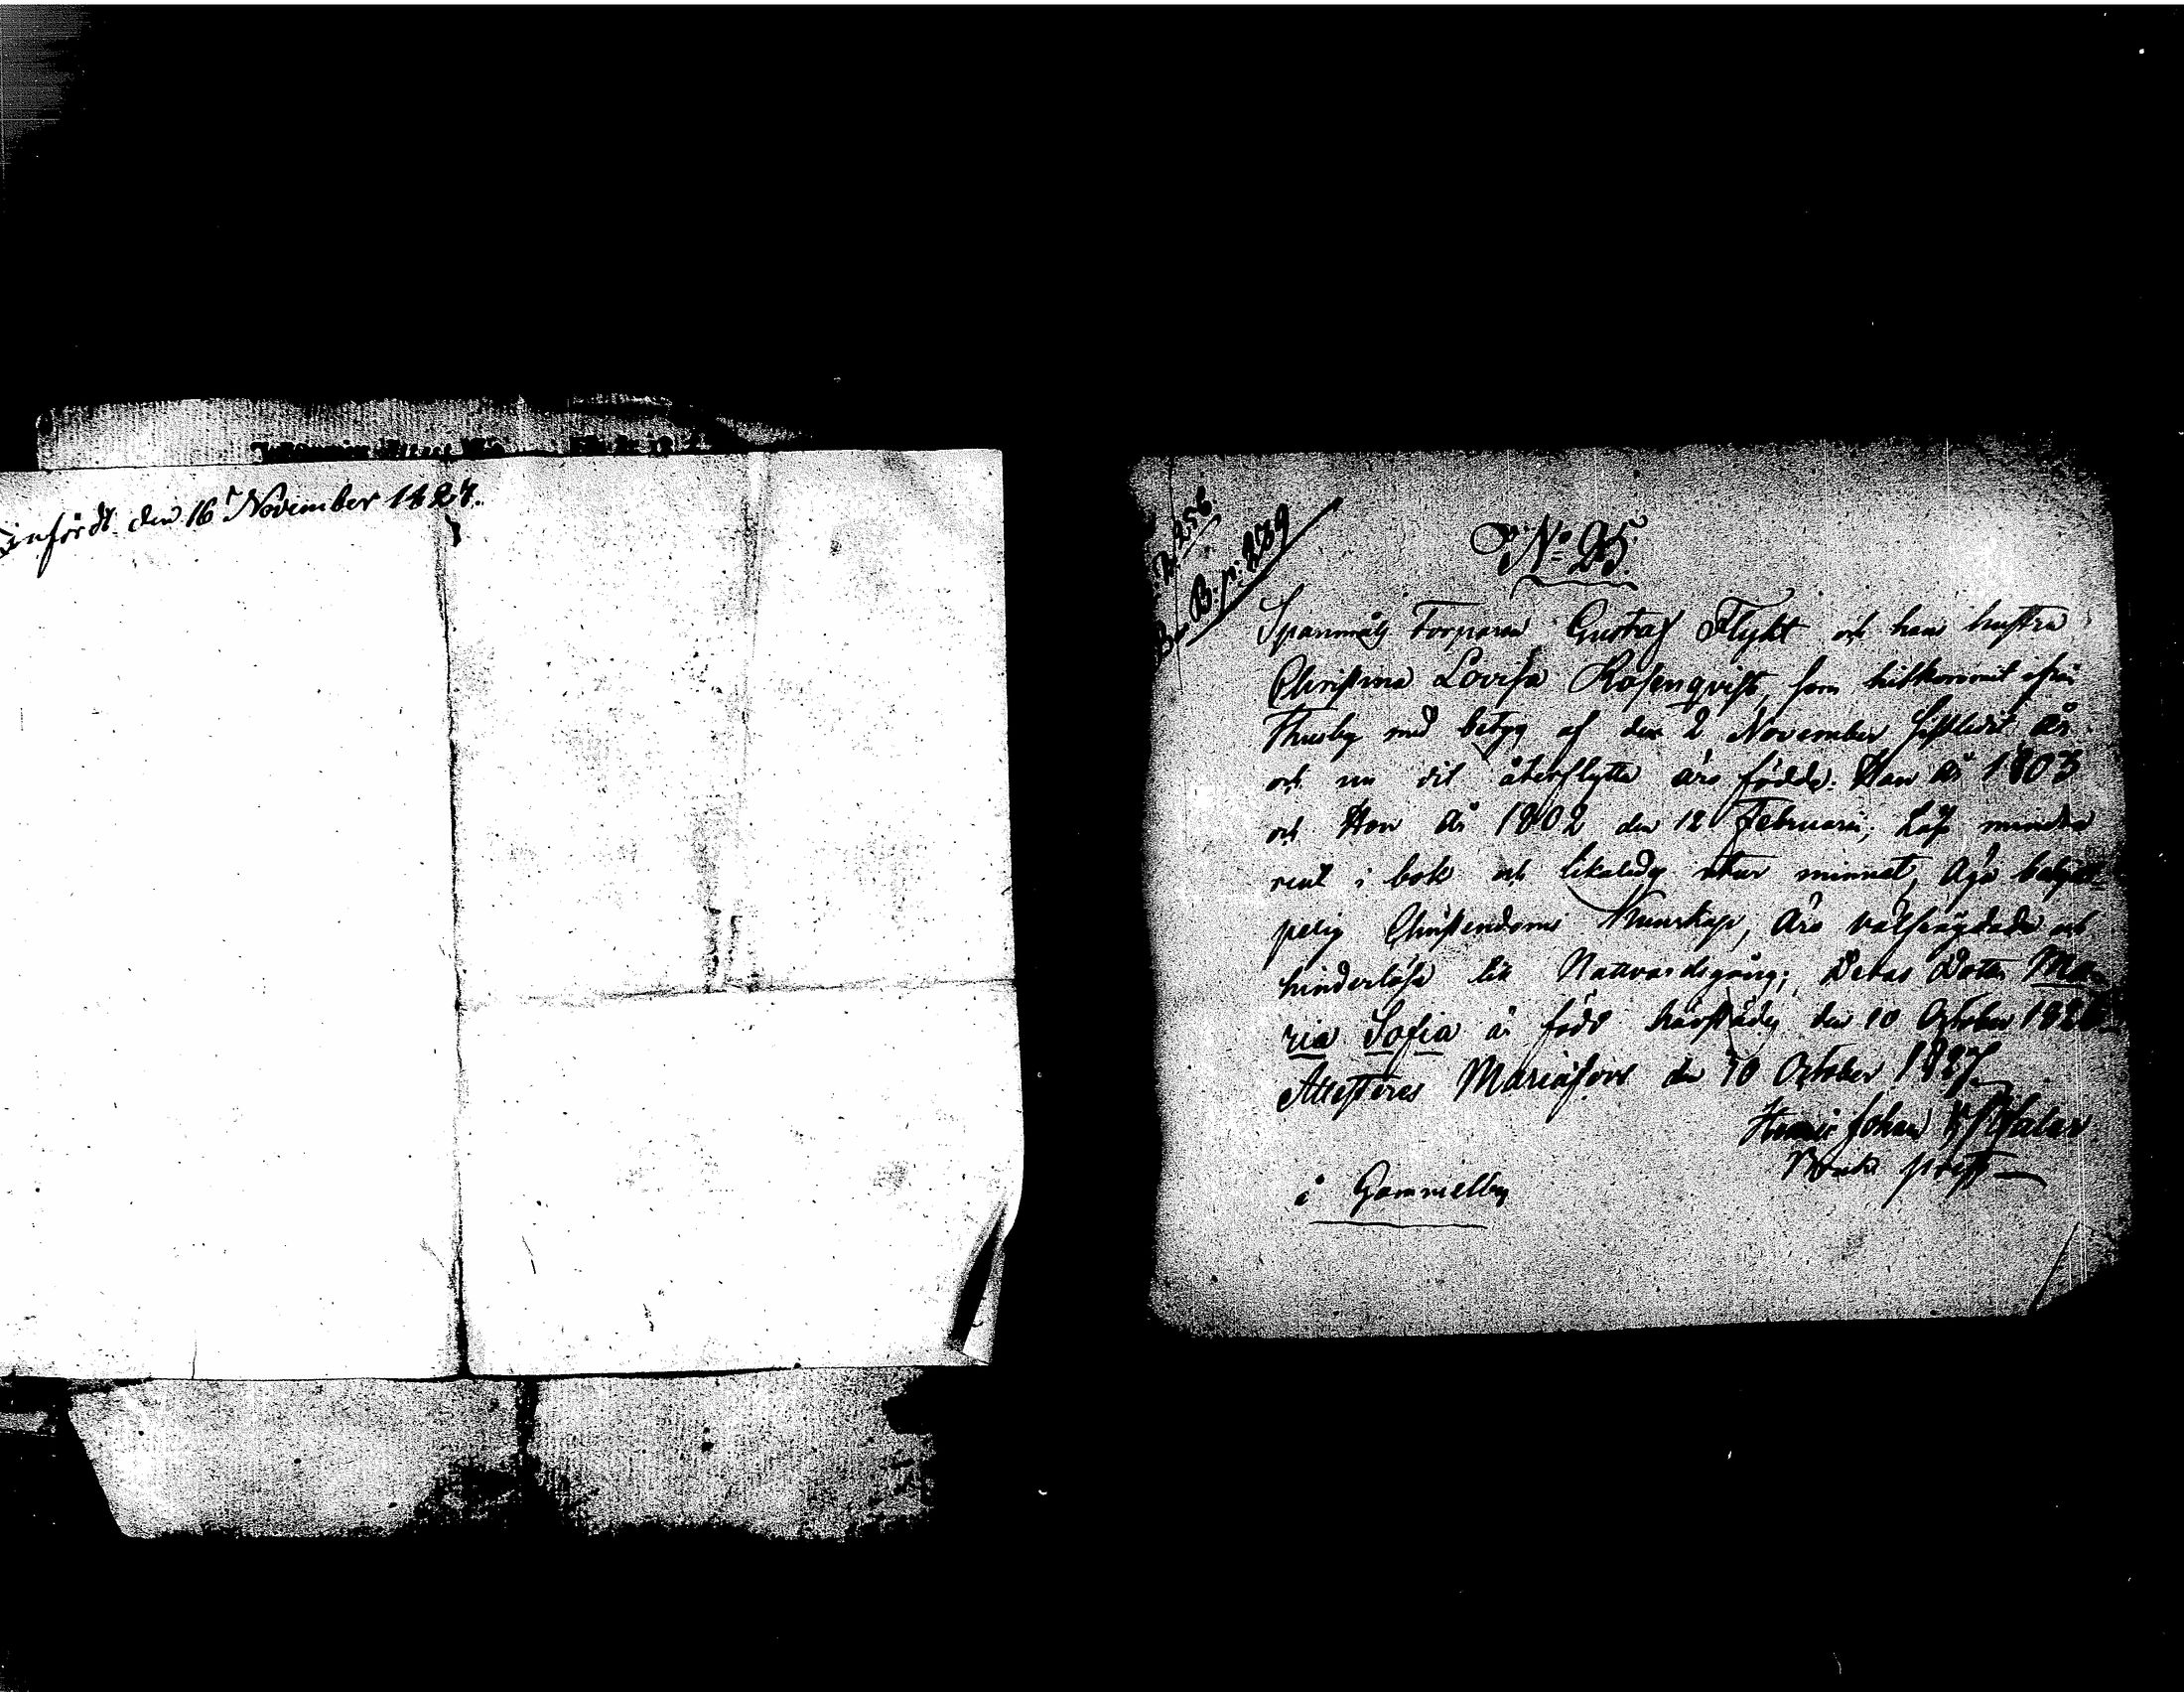 infördt den 16 November 1827.
p. 256
B. p. 289
No 25.
Spanmåls Torparen Gustaf Flykt och hans hustru
Christina Lovisa Rosenqvist, som hitkommit ifrån
Thusby med betyg af den 2 November sistledit år
och nu dit återflytta äro födde: Han år 1803
och Hon år 1802 den 12 Februarii; Läsa mindre
rent i bok och likaledes utur minnet, äga
Christendoms Kunskap, äro välfrägdade och
hinderlösa till Nattvardsgång; Deras Dotter Ma-
ria Sofia är född härstädes den 10 October 182
Attesteres Mariæfors den 10 October 1827
Johan
Bruks prest
i Gammelby